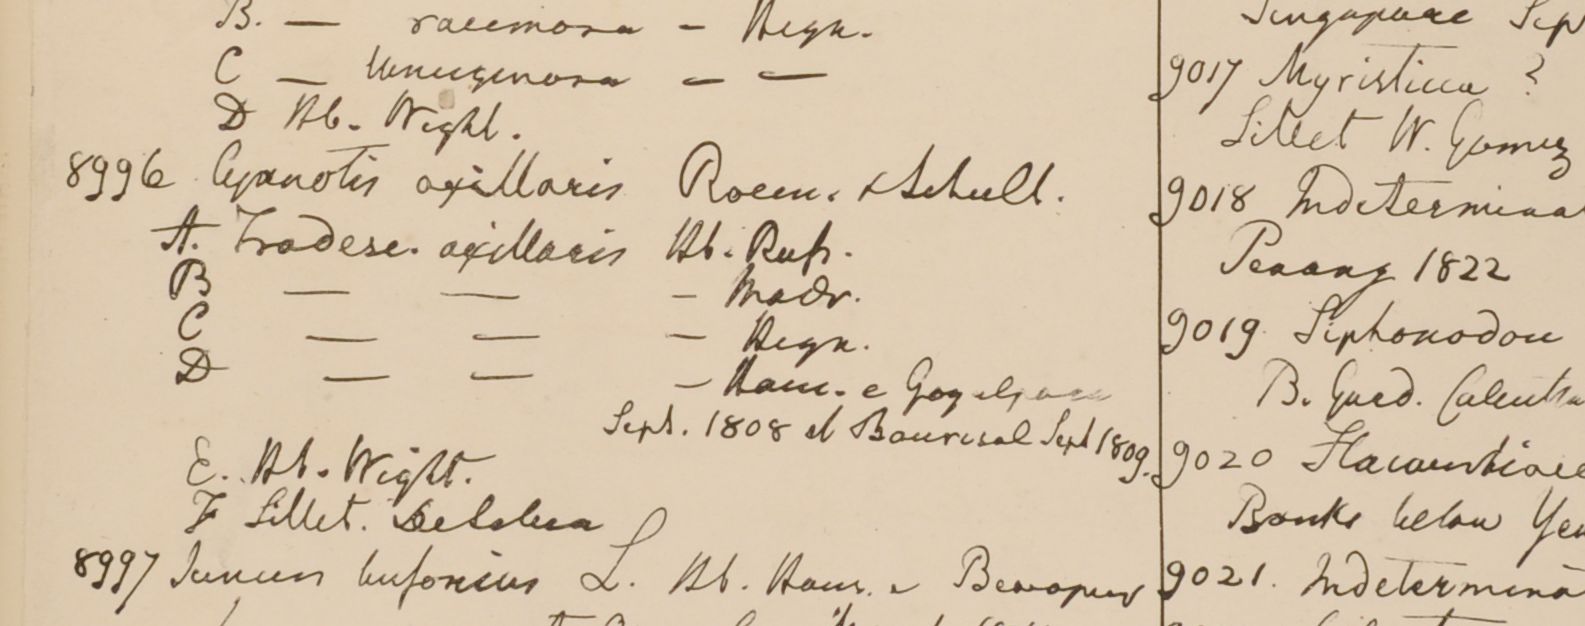 B. — racemosa - Heyn.
C — lanuginosa - —
D Hb. Wight.
8996 Cyanotis axillaris Roem. & Schult.
A. Tradesc. axillaris Hb. Russ.
B — — - Madr.
C — — - Heyn.
D — — - Ham. e Gogalpara
Sept. 1808 et Baurisal Sept 1809.
E. Hb. Wight.
F Sillet. De Silva
8997 Juncus bufonius L. Hb. Ham. e
Singapore Sep
9017 Myristica ?
Sillet W. Gomez
9018 Indetermina
Penang 1822
9019 Siphonodon
B. Gard. Calcutta
9020 Flacourtiace
Banks below Yen
9021. Indetermina